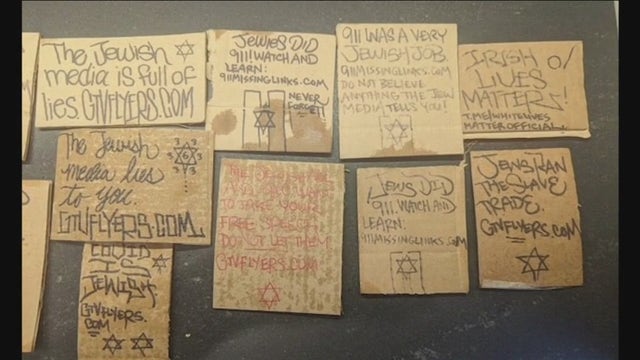 The Jewish
media is full of
lies. GTVFLYERS.COM
JEWIES DID
911! WATCH AND
LEARN:
911MISSINGLINKS.COM
NEVER
FORGET!
911 WAS A VERY
JEWISH JOB.
911MISSINGLINKS.COM
DO NOT BELIEVE
ANYTHING THE JEW
MEDIA TELLS YOU!
IRISH
LIVES
MATTER!
T.ME/WHITELIVES
MATTEROFFICIAL
The Jewish
media lies
to you.
GTVFLYERS.COM
TO TAKE YOUR
FREE SPEECH
DO NOT LET THEM
GTVFLYERS.COM
JEWS DID
911. WATCH AND
LEARN:
911MISSINGLINKS.COM
JEWS RAN
THE SLAVE
TRADE.
GTVFLYERS.COM
COVID
IS
JEWISH
GTVFLYERS.
COM